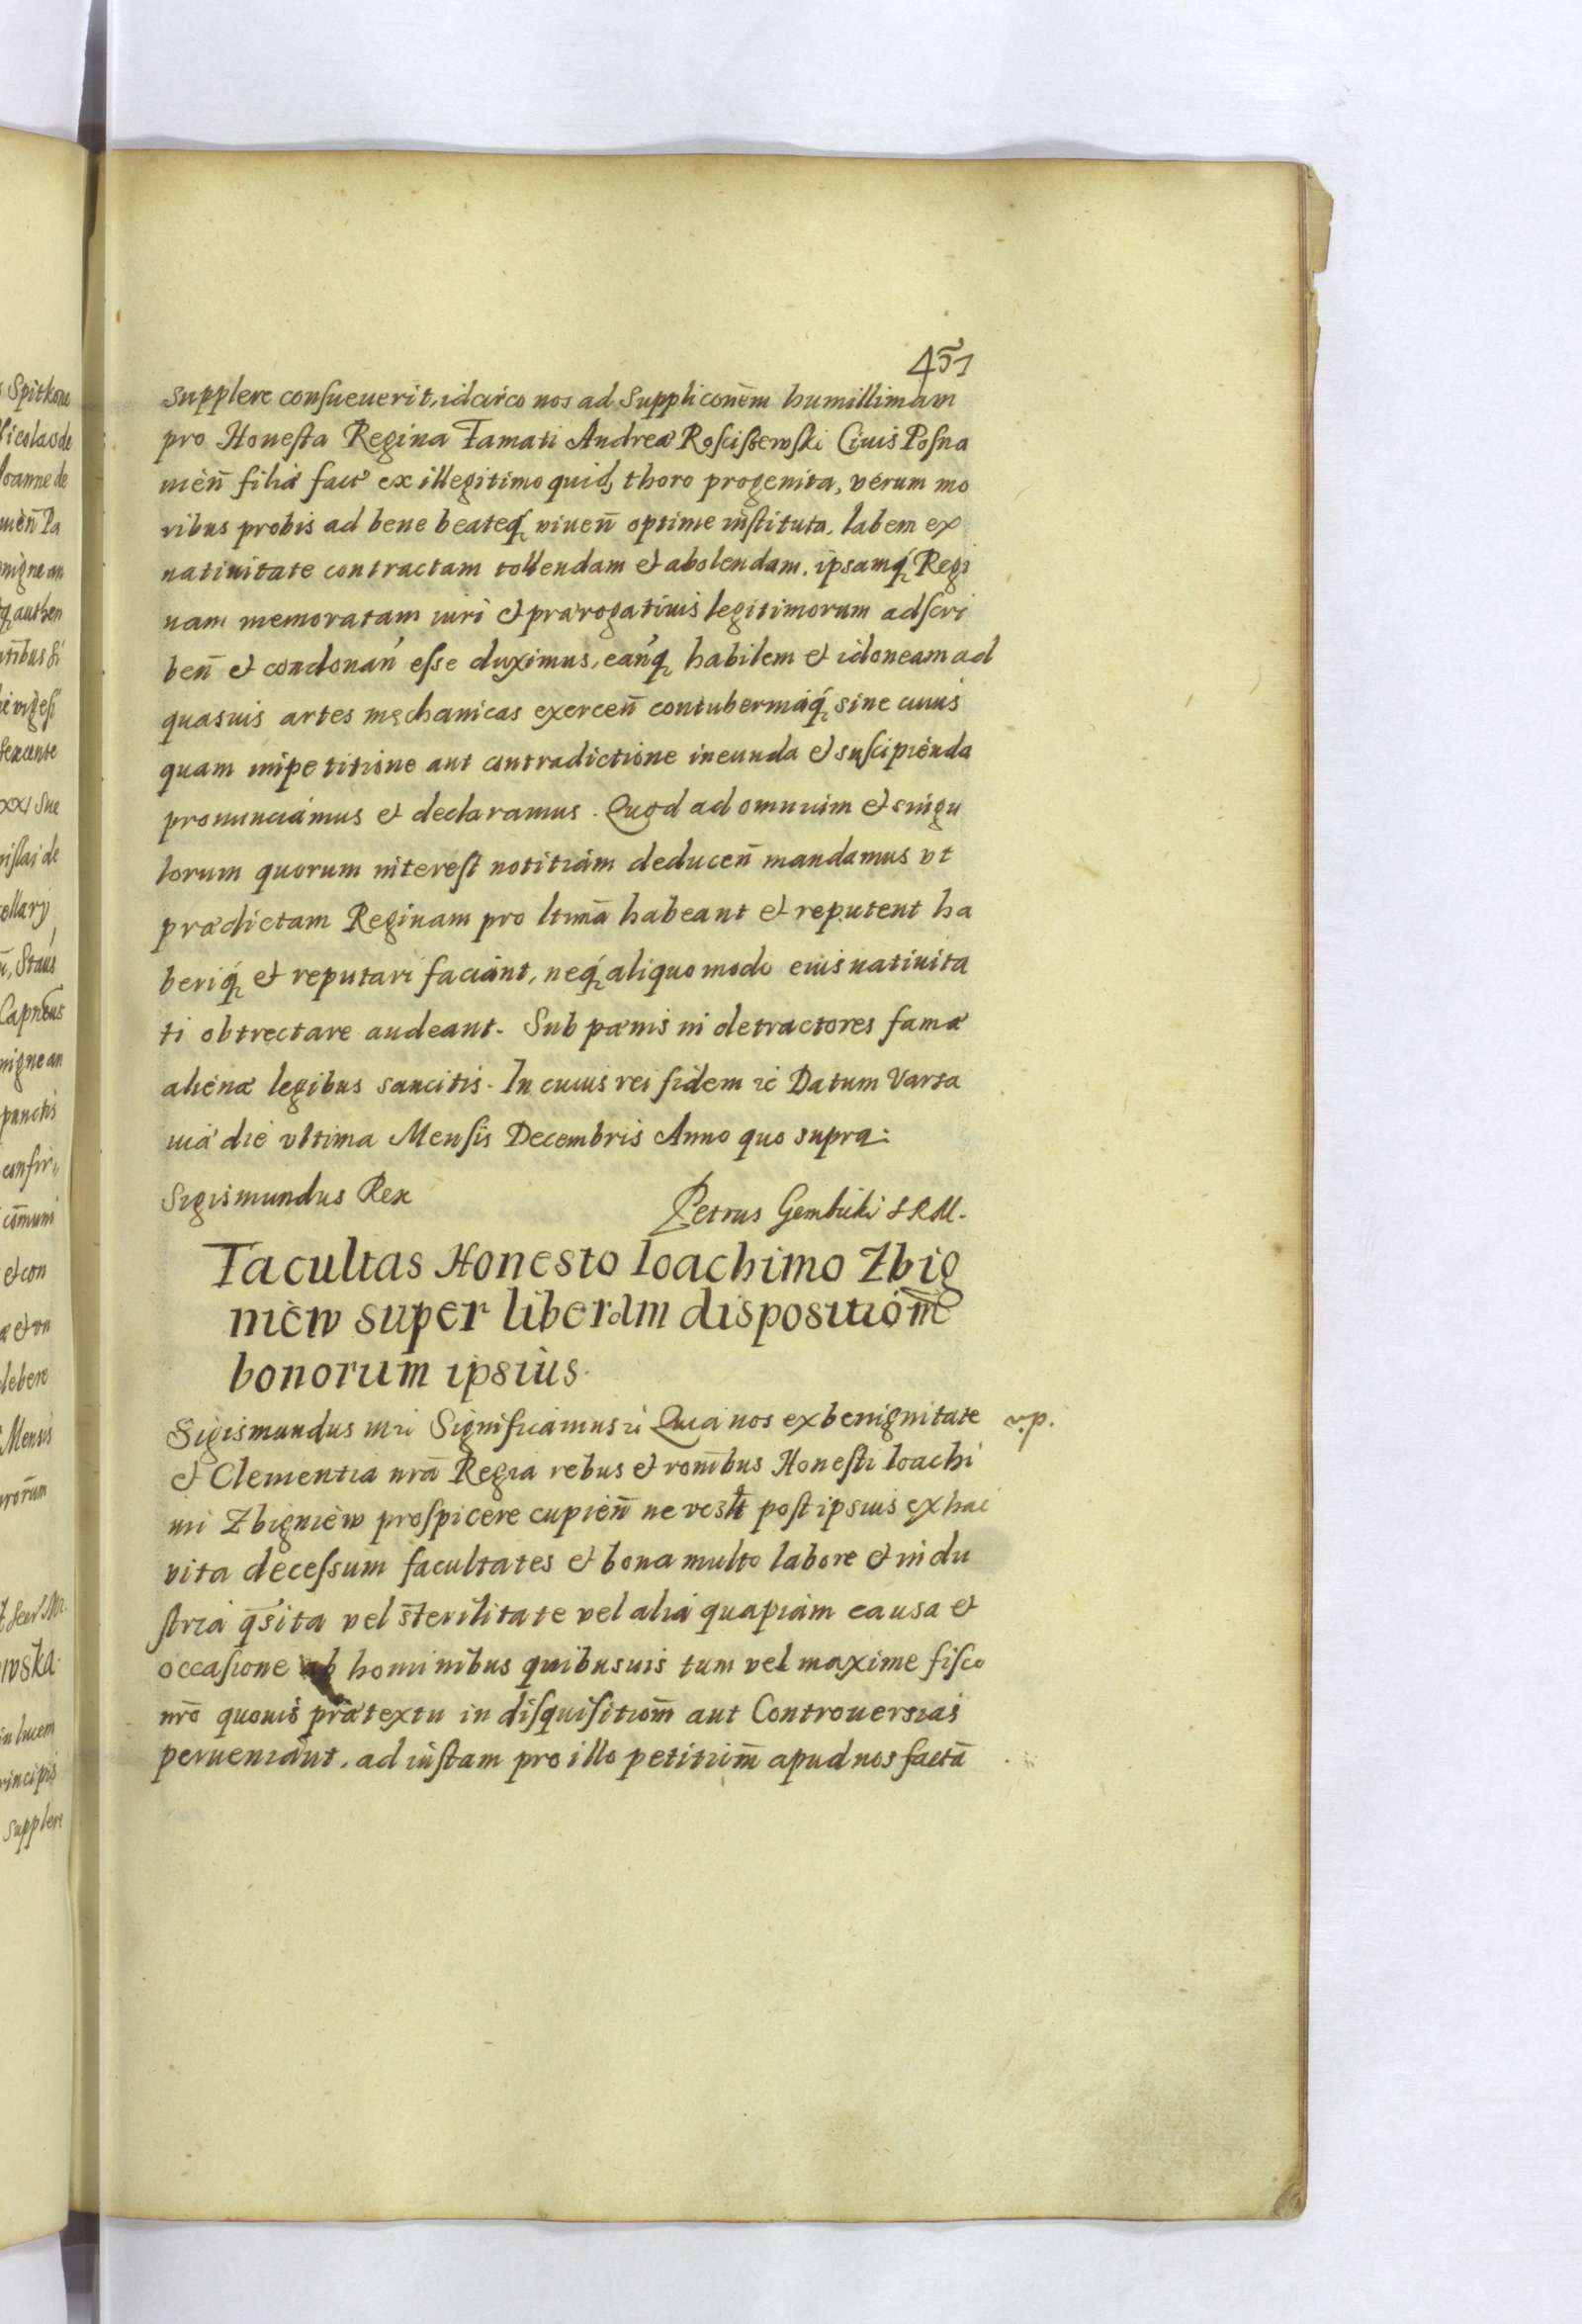 451
supplere consueuerit, idcirco nos ad Suppliconēm humillimam
pro Honesta Regina Famati Andreæ Rosciszewski Ciuis Posna
nień filia facta ex illegitimo quid, thoro progenita, verum mo
ribus probis ad bene beateq́ viueñ optime instituta, labem ex
natiuitate contractam tollendam et abolendam, ipsamq́ Regi
nam memoratam iuri et prærogatiuis legitimorum adscri
beñ et condonań esse duximus, eanq́ habilem et idoneam ad
quasuis artes mechanicas exerceñ contuberniaq́ sine cuius
quam impetitione aut contradictione ineunda et suscipienda
pronunciamus et declaramus. Quod ad omnium et singu
lorum quorum interest notitiam deduceñ mandamus vt
prædictam Reginam pro ltimā habeant et reputent ha
beriq́ et reputari faciant, neq́ aliquo modo eius natiuita
ti obtrectare audeant. Sub pænis in detractores famæ
alienæ legibus sancitis. In cuius rei fidem &c Datum Varsa
uiæ die vltima Mensis Decembris Anno quo supra:
Sigismundus Rex
Petrus Gembicki SRM.
Facultas Honesto Ioachimo Zbig
niew super liberam dispositiōm
bonorum ipsius.
Sigismundus III &c Significamus &c Quia nos ex benignitate
v.p.
et Clementia nrā Regia rebus et ronībus Honesti Ioachi
mi Zbigniew prospicere cupień ne post ipsius ex hac
vita decessum facultates et bona multo labore et indu
stria q̄sita vel sterilitate vel alia quapiam causa et
occasione ab hominibus quibusuis tum vel maxime fisco
nrō quouis prætextu in disquisitiom̄ aut Controuersias
perueniant, ad iustam pro illo petitiom̄ apud nos factā